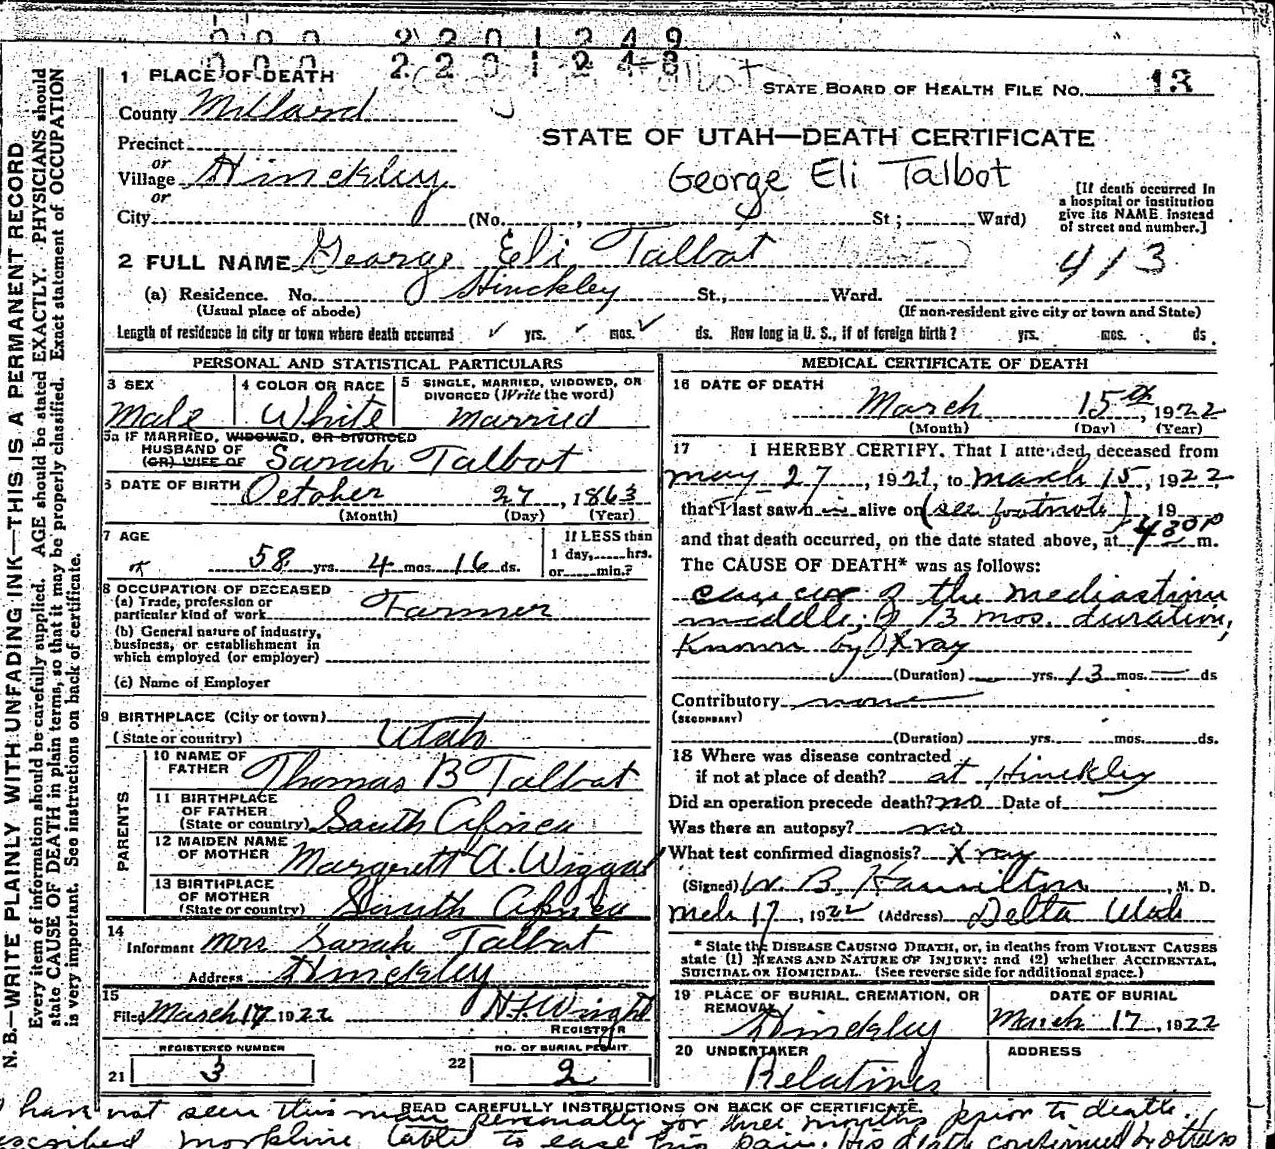 0 0 0 2 2 0 1 2 4 9
0 0 0 2 2 0 1 2 4 8
1 PLACE OF DEATH
STATE BOARD OF HEALTH FILE NO. 13
County Millard
STATE OF UTAH—DEATH CERTIFICATE
Precinct
or
Village Hinckley
George Eli Talbot
or
City (No. , St; Ward)
[If death occurred in a hospital or institution give its NAME instead of street and number.]
2 FULL NAME George Eli Talbot
413
(a) Residence. No. Hinckley St., Ward.
(Usual place of abode) (If non-resident give city or town and State)
Length of residence in city or town where death occurred ✓ yrs. ✓ mos. ✓ ds. How long in U. S., if of foreign birth? yrs. mos. ds.
PERSONAL AND STATISTICAL PARTICULARS
3 SEX
Male
4 COLOR OR RACE
White
5 SINGLE, MARRIED, WIDOWED, OR DIVORCED (Write the word)
Married
5a IF MARRIED, WIDOWED, OR DIVORCED
HUSBAND OF
(OR) WIFE OF Sarah Talbot
6 DATE OF BIRTH October 27, 1863
(Month) (Day) (Year)
7 AGE
58 yrs. 4 mos. 16 ds.
If LESS than
1 day, hrs.
or min.?
8 OCCUPATION OF DECEASED
(a) Trade, profession or
particular kind of work Farmer
(b) General nature of industry,
business, or establishment in
which employed (or employer)
(c) Name of Employer
9 BIRTHPLACE (City or town)
(State or country) Utah
PARENTS
10 NAME OF
FATHER Thomas B Talbot
11 BIRTHPLACE
OF FATHER
(State or country) South Africa
12 MAIDEN NAME
OF MOTHER Margerett A. Wiggas
13 BIRTHPLACE
OF MOTHER
(State or country) South Africa
14
Informant Mrs Sarah Talbot
Address Hinckley
15
Filed March 17 1922 H.F. Wright
REGISTRAR
REGISTERED NUMBER
21 3
NO. OF BURIAL PERMIT
22 2
MEDICAL CERTIFICATE OF DEATH
16 DATE OF DEATH
March 15th, 1922
(Month) (Day) (Year)
17 I HEREBY CERTIFY, That I attended, deceased from
may 27, 1921, to march 15, 1922
that I last saw h im alive on (see footnote) 19
and that death occurred, on the date stated above, at 430P m.
The CAUSE OF DEATH* was as follows:
cancer of the mediastinum
middle, of 13 mos. duration,
Known by Xray
(Duration) — yrs. 13 mos. — ds
Contributory none
(SECONDARY)
(Duration) yrs. mos. ds.
18 Where was disease contracted
if not at place of death? at Hinckley
Did an operation precede death? no Date of
Was there an autopsy? no
What test confirmed diagnosis? X ray
(Signed) W. B. Hamilton, M. D.
Mch 17, 1922 (Address) Delta Utah
* State the DISEASE CAUSING DEATH, or, in deaths from VIOLENT CAUSES
state (1) MEANS AND NATURE OF INJURY; and (2) whether ACCIDENTAL,
SUICIDAL OR HOMICIDAL. (See reverse side for additional space.)
19 PLACE OF BURIAL, CREMATION, OR REMOVAL
Hinckley
DATE OF BURIAL
March 17, 1922
20 UNDERTAKER
Relatives
ADDRESS
READ CAREFULLY INSTRUCTIONS ON BACK OF CERTIFICATE.
I have not seen this man personally for three months prior to death.
morphine table to ease his pain. His death confirmed by others
N. B.—WRITE PLAINLY WITH UNFADING INK—THIS IS A PERMANENT RECORD
Every item of information should be carefully supplied. AGE should be stated EXACTLY. PHYSICIANS should
state CAUSE OF DEATH in plain terms, so that it may be properly classified. Exact statement of OCCUPATION
is very important. See instructions on back of certificate.